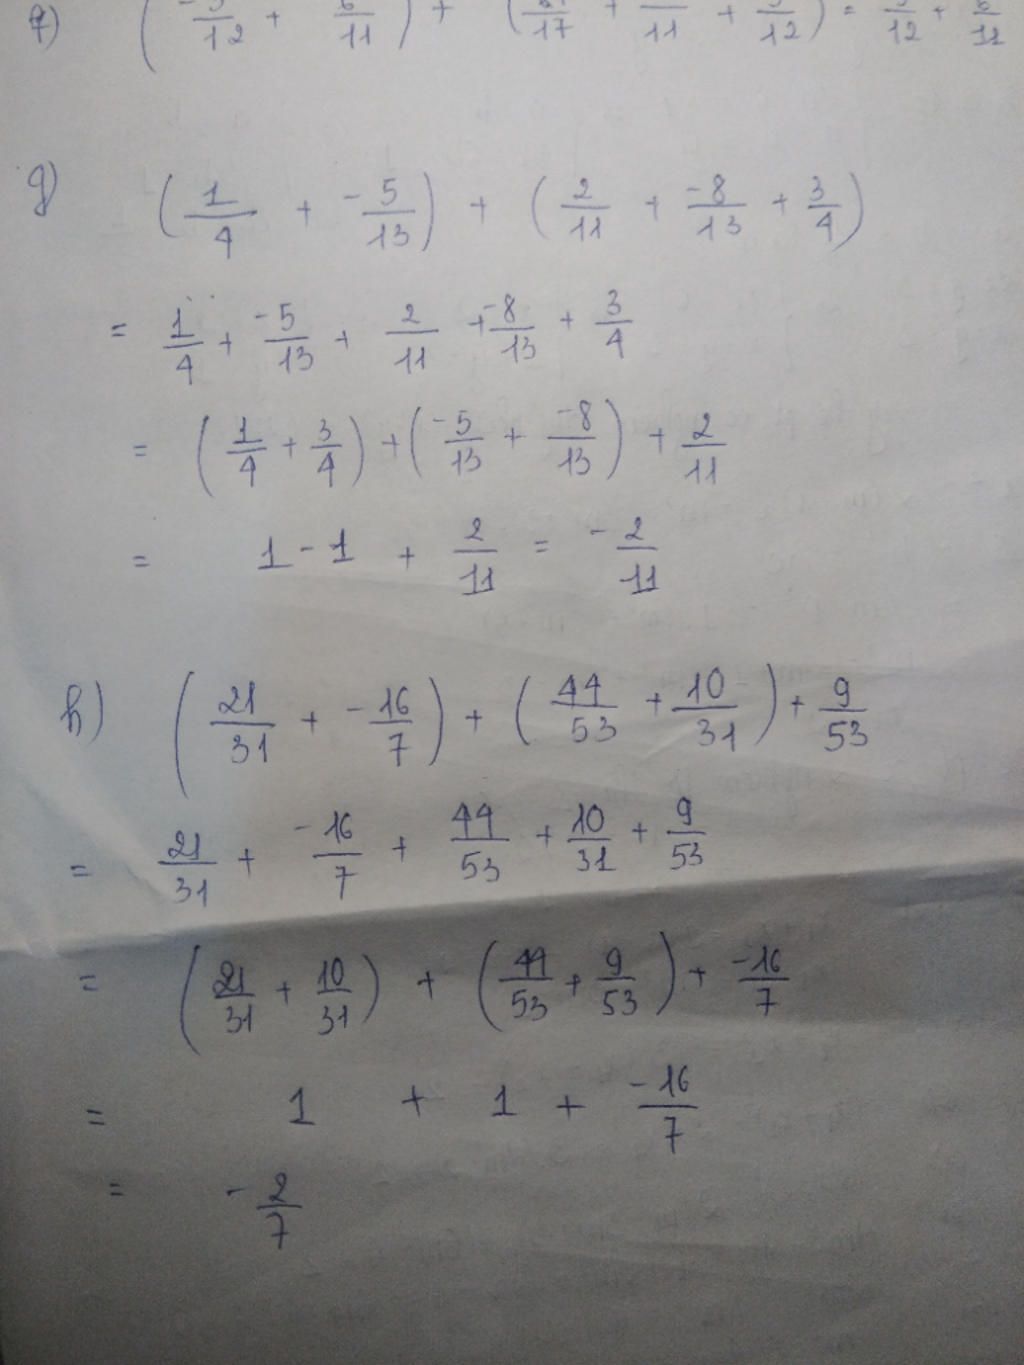 g) (1/4 + -5/13) + (2/11 + -8/13 + 3/4)
= 1/4 + -5/13 + 2/11 + -8/13 + 3/4
= (1/4 + 3/4) + (-5/13 + -8/13) + 2/11
= 1 - 1 + 2/11 = -2/11
h) (21/31 + -16/7) + (44/53 + 10/31) + 9/53
= 21/31 + -16/7 + 44/53 + 10/31 + 9/53
= (21/31 + 10/31) + (44/53 + 9/53) + -16/7
= 1 + 1 + -16/7
= -2/7